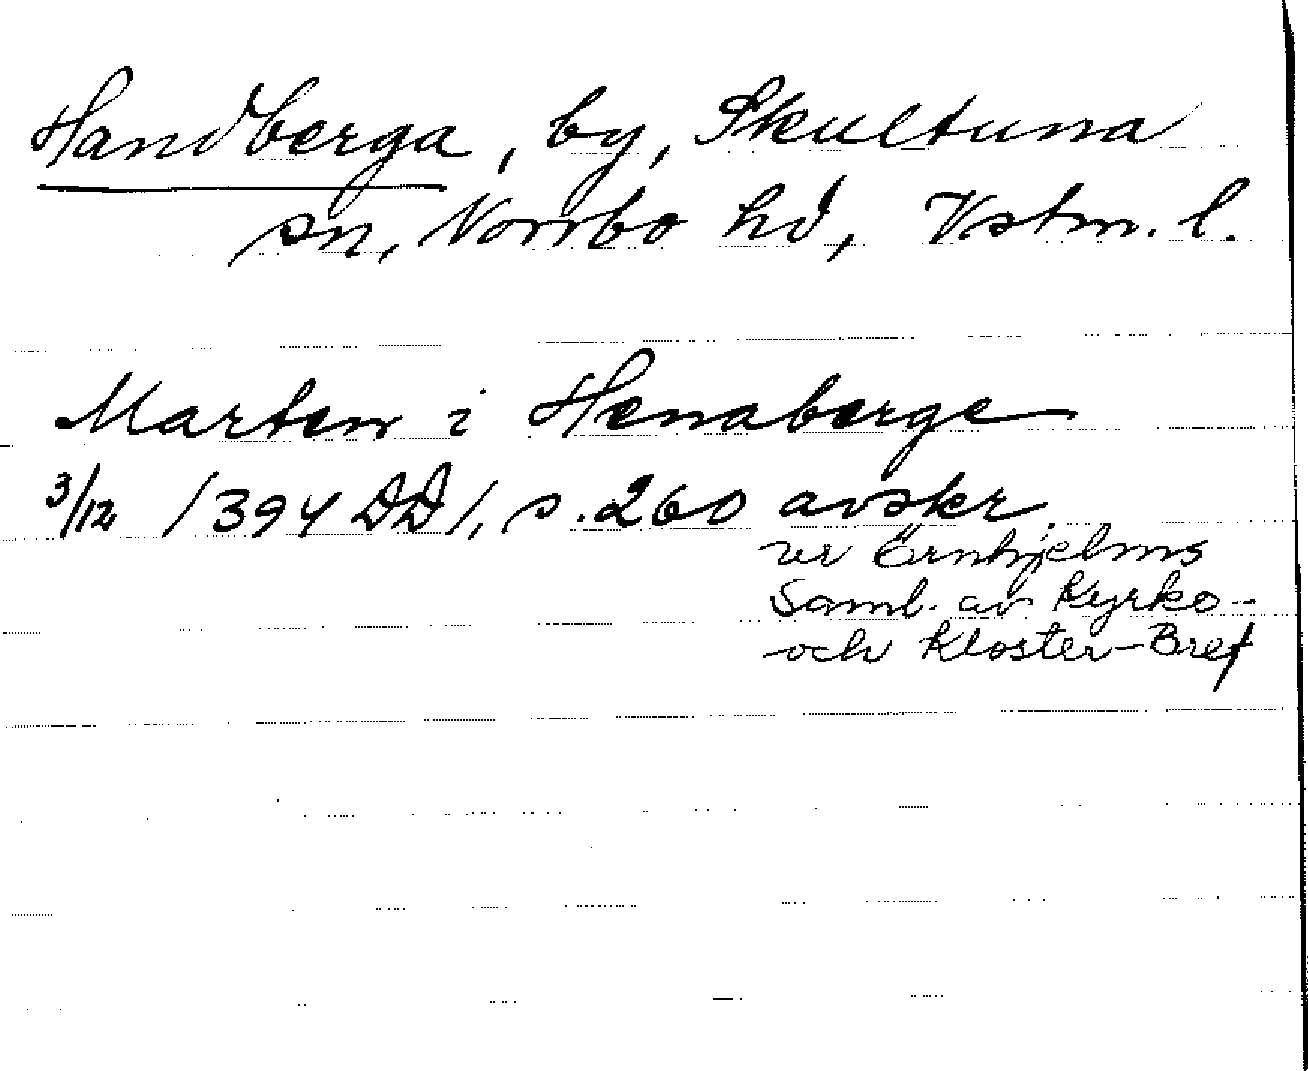 Handberga, by, Skultuna
sn, Norrbo hd, Vstm. l.
Marten i Henaberge
3/12 1394 DD 1, s. 260 avskr.
ur Örnhjelms
Saml. av Kyrko-
och Kloster-Bref